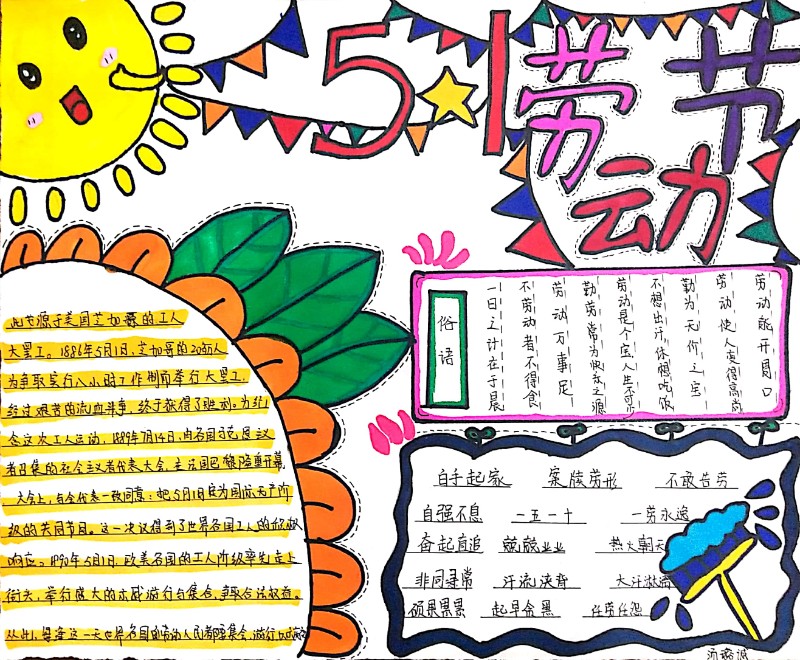 5★1
劳动节
此节源于美国芝加哥的工人
大罢工。1886年5月1日,芝加哥的20万人
为争取实行八小时工作制而举行大罢工,
经过艰苦的流血斗争,终于获得了胜利。为纪
念这次工人运动,1889年7月14日,由各国马克思主义
者召集的社会主义者代表大会,在法国巴黎隆重开幕
大会上,与会代表一致同意:把5月1日定为国际无产阶
级的共同节日。这一决议得到了世界各国工人的积极
响应。1890年5月1日,欧美各国的工人阶级率先走上
街头,举行盛大的示威游行与集会,争取合法权益。
从此,每逢这一天世界各国的劳动人民都要集会,游行,以示庆祝
俗语
劳动能开园口
劳动使人变得高尚
勤为无价之宝
不想出汗,休想吃饭
劳动是个宝人生不可少
勤劳常为快乐之源
劳动万事足
不劳动者不得食
一日之计在于晨
白手起家 案牍劳形 不敢告劳
自强不息 一五一十 一劳永逸
奋起直追 兢兢业业 热火朝天
非同寻常 汗流浃背 大汗淋漓
硕果累累 起早贪黑 任劳任怨